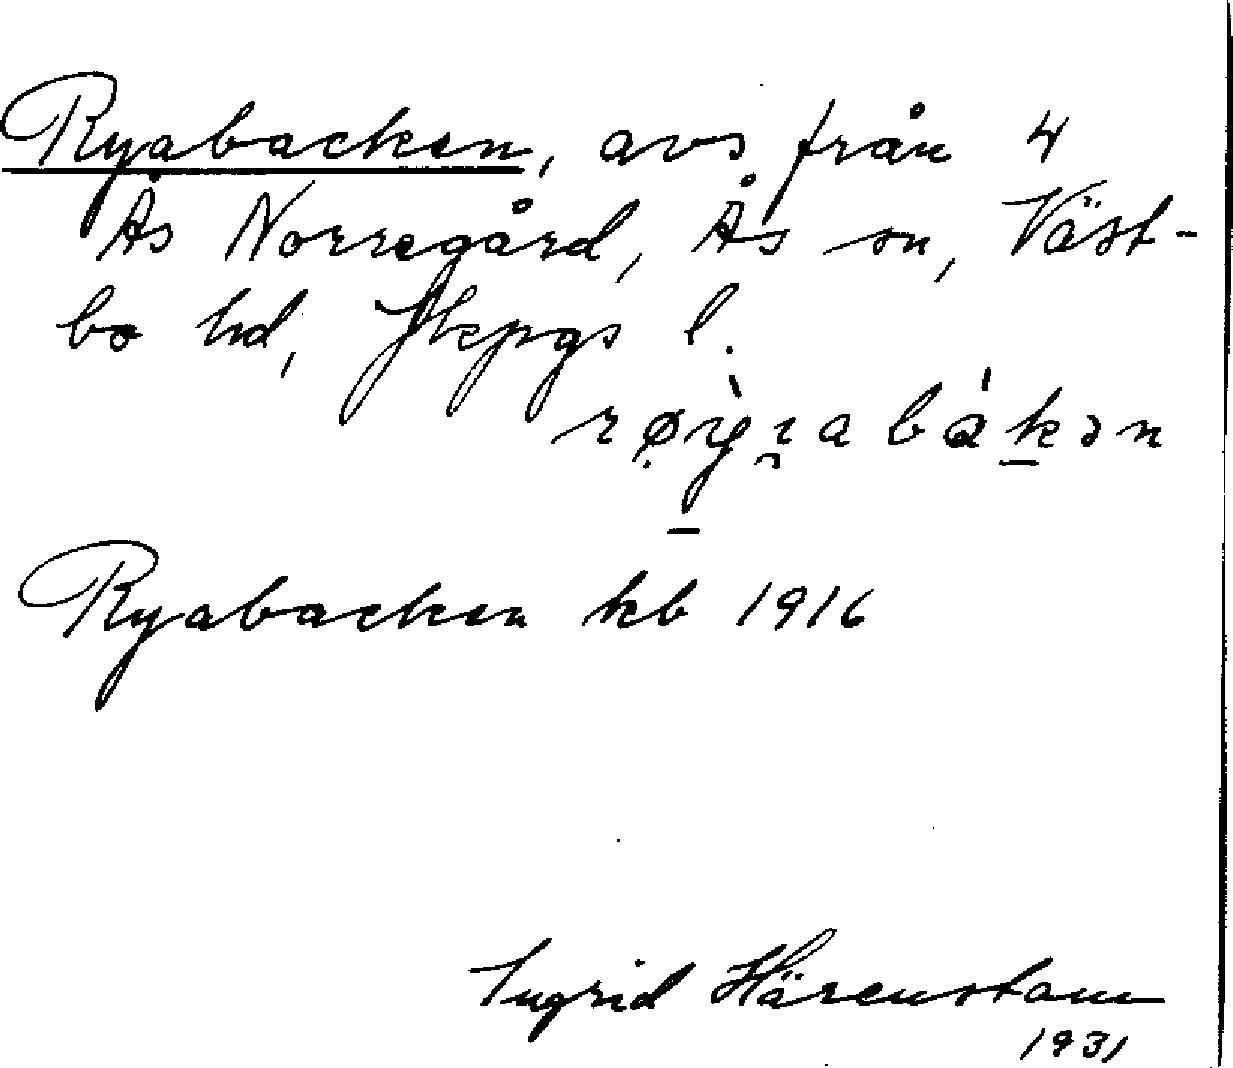 Ryabacken, avs från 4
Ås Norregård, Ås sn, Väst-
bo hd, Jkpgs l.
Ryabacken kb 1916
Ingrid Härenstam
1931